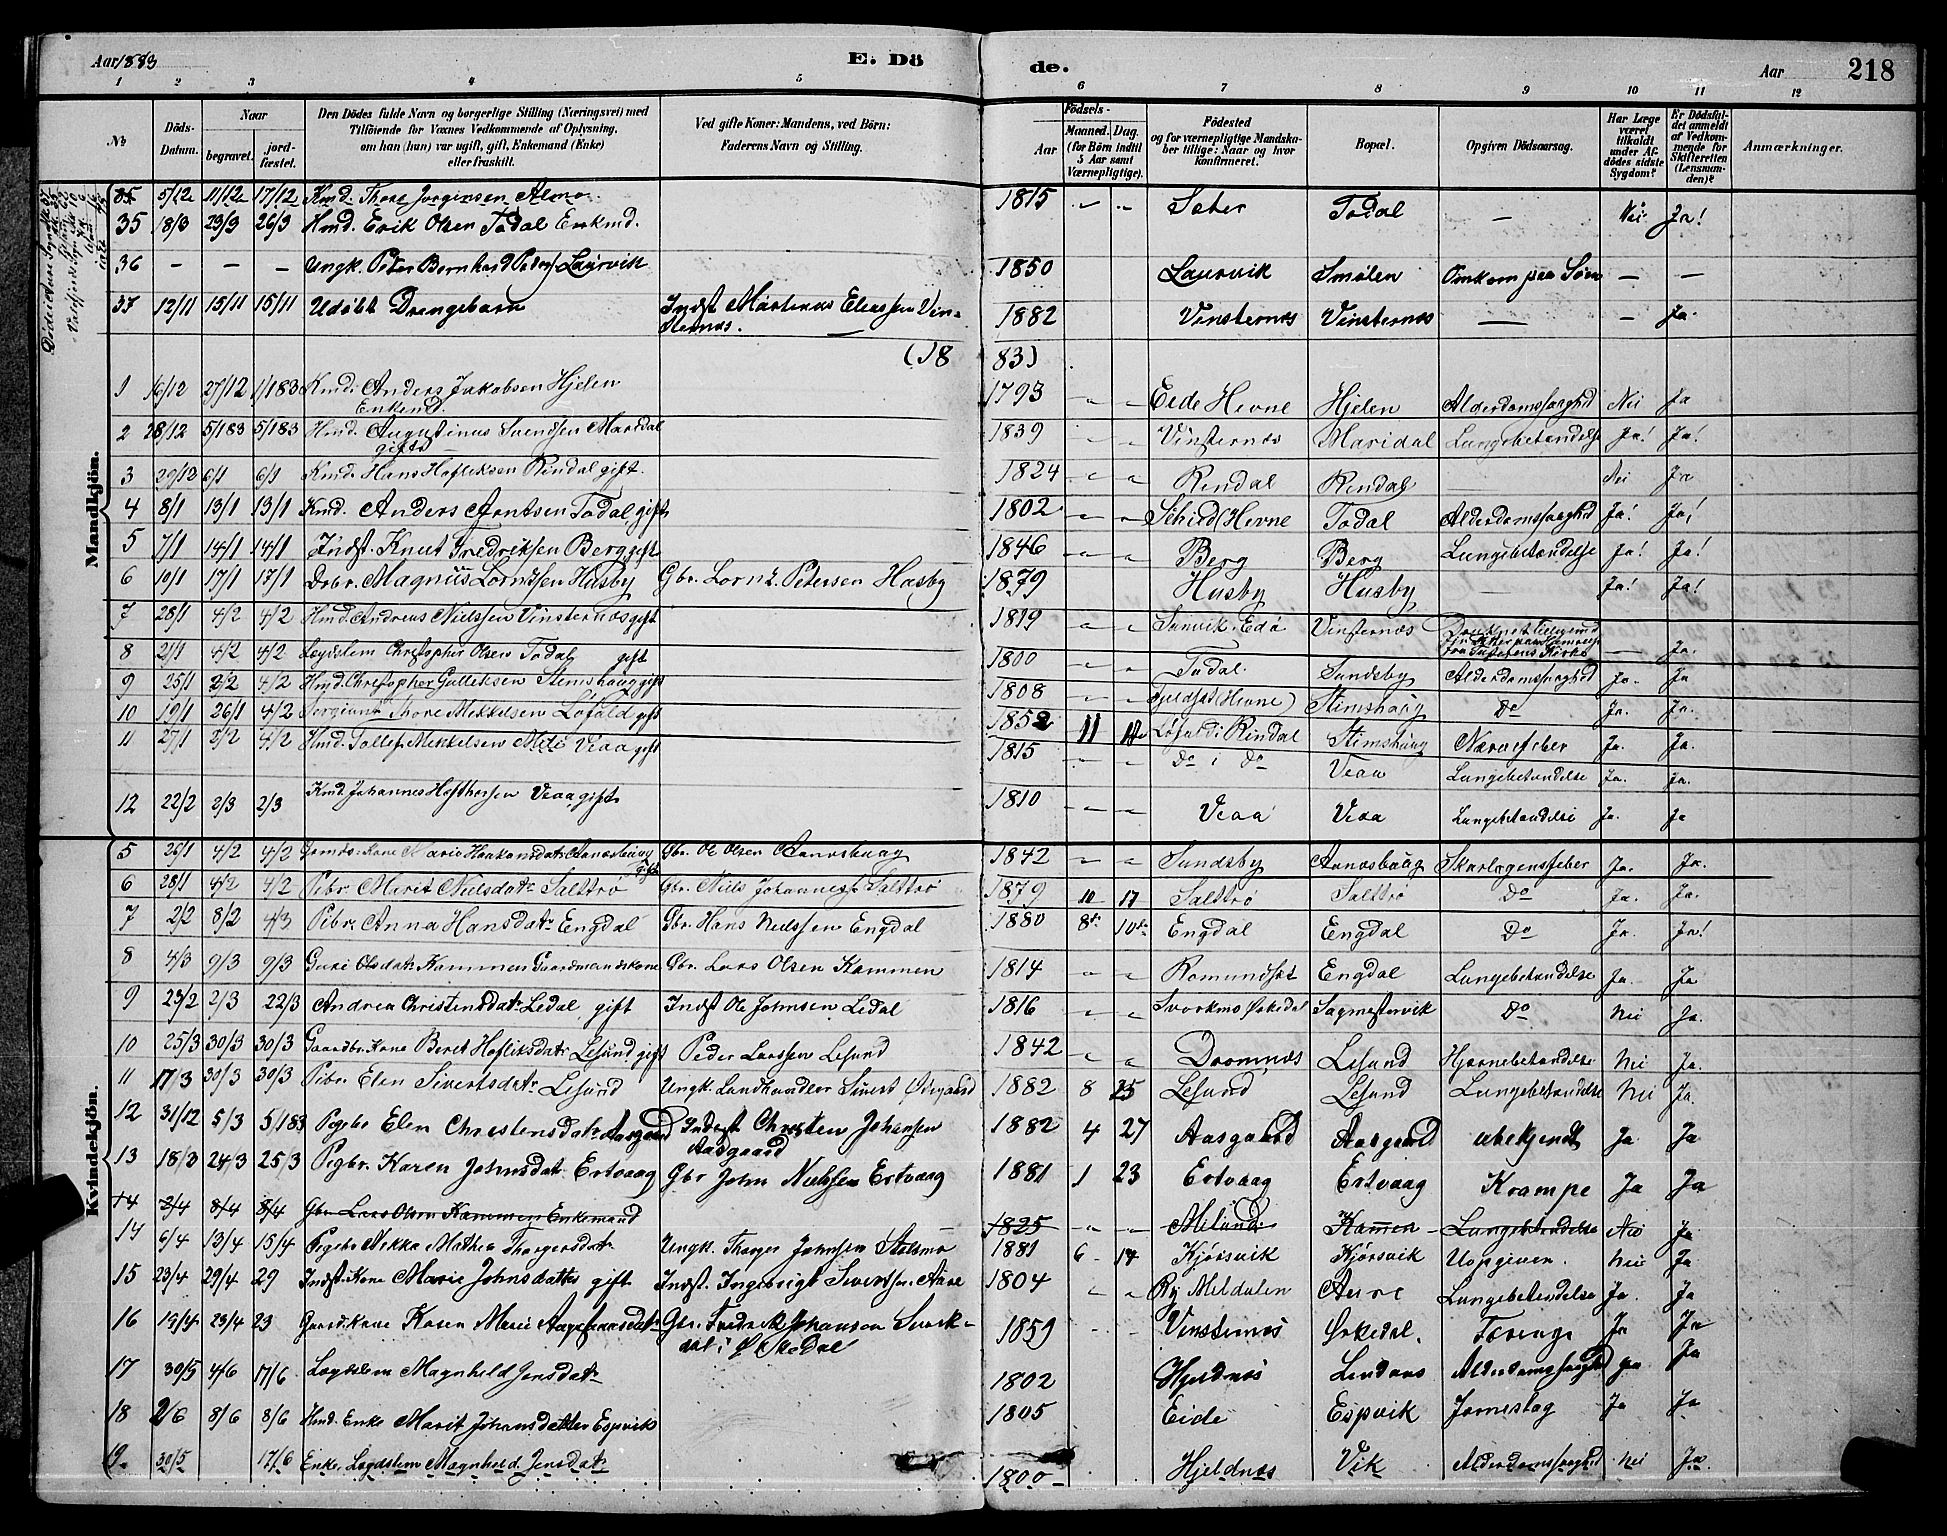 Aar 1883
E. Dö
de.
Aar
218
1 2 3 4 5 6 7 8 9 10 11 12
No
Döds-Datum.
Naar
begravet.
jord-fæstet.
Den Dödes fulde Navn og borgerlige Stilling (Næringsvei) med
Tilföiende for Voxnes Vedkommende af Oplysning,
om han (hun) var ugift, gift, Enkemand (Enke)
eller fraskilt.
Ved gifte Koner: Mandens, ved Börn:
Faderens Navn og Stilling.
Födsels-
Aar
Maaned. Dag.
(for Börn indtil
5 Aar samt
Værnepligtige).
Födested
og for værnepligtige Mandska-
ber tillige: Naar og hvor
konfirmeret.
Bopæl.
Opgiven Dödsaarsag.
Har Læge
været
tilkaldt
under Af-
dödes sidste
Sygdom?
Er Dödsfal-
det anmeldt
af Vedkom-
mende for
Skifteretten
(Lensman-
den)?
Anmærkninger.
Mandkjön.
35 5/12 11/12 17/12 Kmd. Thore Jørgensen Almo 1815 " " Seter Todal — Nei Ja!
35 18/3 23/3 26/3 Hmd. Erik Olsen Todal Enkmd.
36 — — — Ungk. Peder Bernhard Peders. Laurvik 1850 Laurvik Smølen Omkom paa Søen — —
37 12/11 15/11 15/11 Udöbt Drengebarn Indst Martinus Eliassen Vin-
sternes. 1882 Vinsternes Vinsternes — — Ja.
(18 83)
1 16/12 27/12 1/1 83 Kmd. Anders Jakobsen Hjelen
Enkemd. 1793 " " Eide Hevne Hjelen Alderdomssvaghed Nei Ja
2 28/12 5/1 83 5/1 83 Hmd. Augustinus Svendsen Maridal
gift 1839 " " Vinsternes Maridal Lungebetændelse Ja! Ja!
3 29/12 6/1 6/1 Kmd. Hans Hafliksen Rindal gift. 1824 " " Rindal Rindal — Nei Ja
4 8/1 13/1 13/1 Kmd. Anders Arntsen Todal, gift 1802 " " Hevne Todal Alderdomssvaghed Ja! Ja!
5 7/1 14/1 14/1 Indst. Knut Fredriksen Berg gift 1846 " " Berg Berg Lungebetændelse Ja! Ja!
6 10/1 17/1 17/1 Drbr. Magnus Lorntsen Husby Gbr. Lornt. Petersen Husby 1879 Husby Husby — Ja! Ja!
7 28/1 4/2 4/2 Hmd. Andreas Nielssen Vinsternes gift 1819 " " Sanvik, Edø Vinsternes
8 21/1 4/2 4/2 Legdslem Christopher Olsen Todal gift 1800 " " Todal. Sundsby Alderdomssvaghed — Ja.
9 25/1 2/2 4/2 Hmd. Christopher Gulleksen Stemshaug gift 1808 " " (Hevne) Stemshaug Do Ja. Ja
10 19/1 26/1 4/2 Sergiant Thore Mikkelsen Løfald gift 1852 11 Løfald i Rindal Stemshaug Nervefeber Ja. Ja.
11 27/1 2/2 4/2 Hmd. Tollef Mikkelsen Veaa gift 1815 " " Do i Do Veaa Lungebetændelse Ja. Ja.
12 22/2 2/3 2/3 Kmd. Johannes Hafthorsen Veaa, gift 1810 " " Veaa Veaa Lungebetændelse Ja. Ja
Kvindekjön.
5 26/1 4/2 4/2 Gaardm. Kone Marie Haakonsdatr Aanæshaug
gift Gbr. Ole Olsen Aanæshaug 1842 " " Sundsby Aanæshaug Skarlagensfeber Ja. Ja.
6 28/1 4/2 4/2 Pibr. Marit Nielsdatr. Salttrø Gbr. Niels Johanness. Salttrø 1879 10 17 Salttrø Salttrø Do Ja. Ja.
7 2/2 8/2 4/3 Pibr. Anna Hansdatr. Engdal Gbr. Hans Nielssen Engdal 1880 8 10 Engdal Engdal Do Ja. Ja!
8 4/3 9/3 9/3 Guri Olsdatr. Kammen Gaardmandskone Gbr. Lars Olsen Kammen 1814 " " Romundset Engdal Lungebetændelse Ja. Ja
9 23/2 2/3 22/3 Andrea Christensdatr. Ledal, gift Indst Ole Johnsen Ledal 1816 " " Svorkmo Ørkedal Sagmestervik Do Nei Ja.
10 25/3 30/3 30/3 Gaardbr. Kone Beret Hafliksdatr. Lesund gift Peder Larssen Lesund 1842 " " Dromnes Lesund Hjernebetændelse Nei Ja.
11 17/3 30/3 30/3 Pibr. Elen Sivertsdatr. Lesund Ungk. Landhandler Sivert Øiegaard 1882 8 25 Lesund Lesund Lungebetændelse Nei Ja.
12 31/12 5/3 5/1 83 Pigebr Elen Christensdatr. Aasgaard Inderst Christen Johansen
Aasgaard 1882 4 27 Aasgaard Aasgaard ubekjendt Ja Ja
13 18/3 24/3 25/3 Pigbr. Karen Johnsdatr Ertvaag Gbr John Nielssen Ertvaag 1881 1 23 Ertvaag Ertvaag Krampe Ja Ja
14 2/4 8/4 8/4 Gbr. Lars Olsen Kammen Enkemand 1825 " " Melund Kamen Lungebetændelse Nei Ja
14 6/4 13/4 15/4 Pigebr Nikka Mathea Thorgersdatr. Ungk. Thorger Johnsen Stolsmo 1881 6 14 Kjørsvik Kjørsvik Uopgiven. Nei Ja
15 23/4 29/4 29 Indst. Kone Marie Johnsdatter gift Indst. Ingebrigt Sivertsen Aure 1804 " " Meldalen Aure Lungebetændelse Ja. Ja
16 19/4 23/4 23 Gaard. Kone Karen Marie Gbr. Fredrik Johansen Svork-
dal i Ørkedal 1859 " " Vinsternes Ørkedal. Tærenge Ja Ja
17 30/5 4/6 17/6 Lægdslem Magnhild Jensdatr. 1802 Hjeldnes Lendnes Alderdomssvaghed Ja
18 2/6 8/6 8/6 Hmd. Enke Marit Johansdatter Espvik 1805 Eide Espvik Jomeslag Ja Ja
19. 30/5 17/6 Enke, Lægdslem Magnhild Jensdatr. 1800 Hjeldnes Vik Alderdomssvaghed Nei Ja